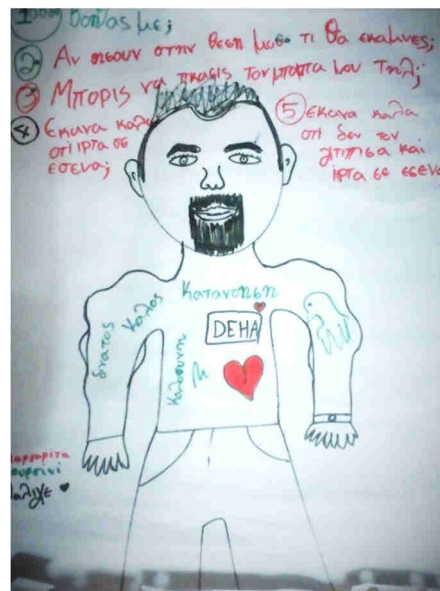 1 βοηθας με;
2 Αν ησουν στην θεση μου τι θα εκαμνες;
3 Μπορις να πιασις τον μπαπα μου τηλ;
4 Εκανα καλα
οτι ιρτα σε
εσενα;
5 Εκανα καλα
οτι δεν τον
χτιπισα και
ιρτα σε εσενα
Κατανοηση
Καλος
Δνατος
Καλοσυνη
DEHA
Μαργαριτα